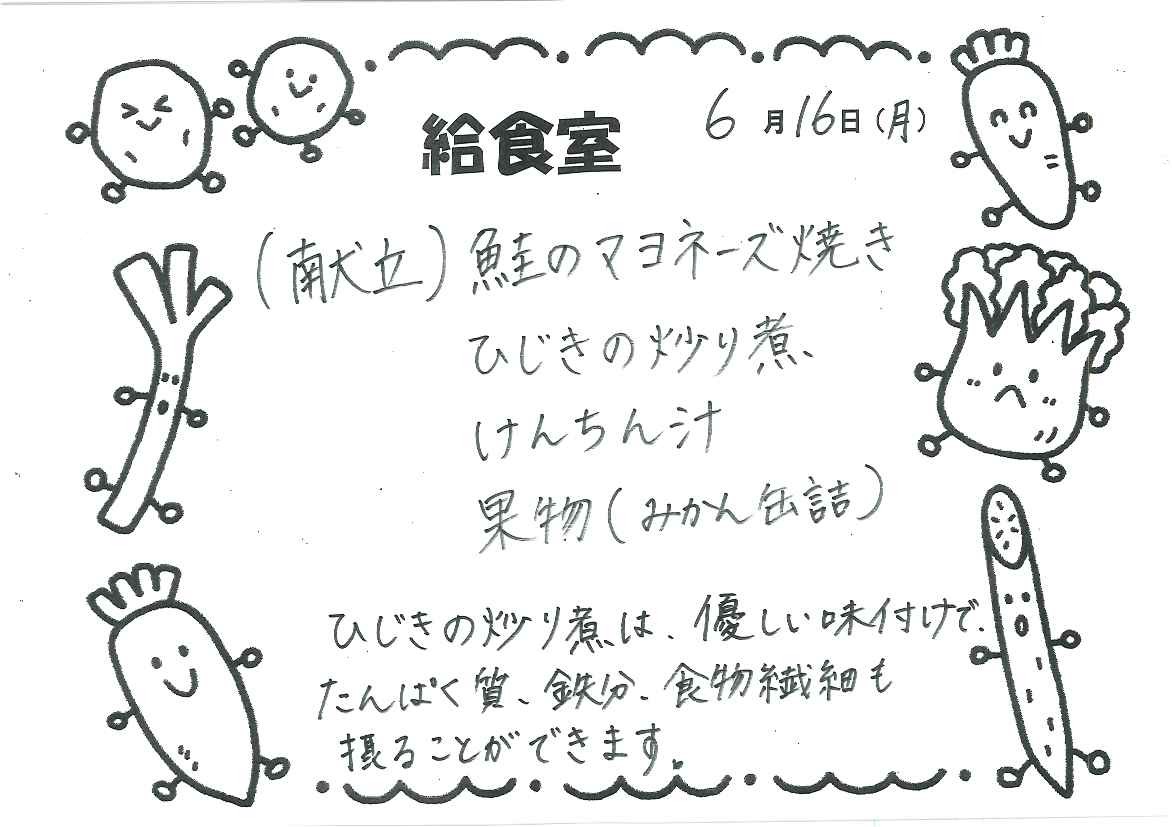 給食室
6月16日(月)
(献立)鮭のマヨネーズ焼き
ひじきの炒り煮
けんちん汁
果物(みかん缶詰)
ひじきの炒り煮は、優しい味付けで、
たんぱく質、鉄分、食物繊維も
摂ることができます。